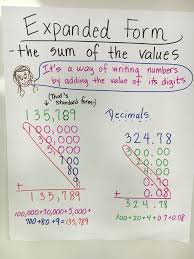 Expanded Form
- the sum of the values
It's a way of writing numbers
by adding the value of its digits
(That's
standard form.)
135,789
100,000
30,000
5,000
700
80
+ 9
135,789
100,000+30,000+5,000+
700+80+9=135,789
Decimals
324.78
300.00
20.00
4.00
0.70
+ 0.08
324.78
300+20+4+0.7+0.08